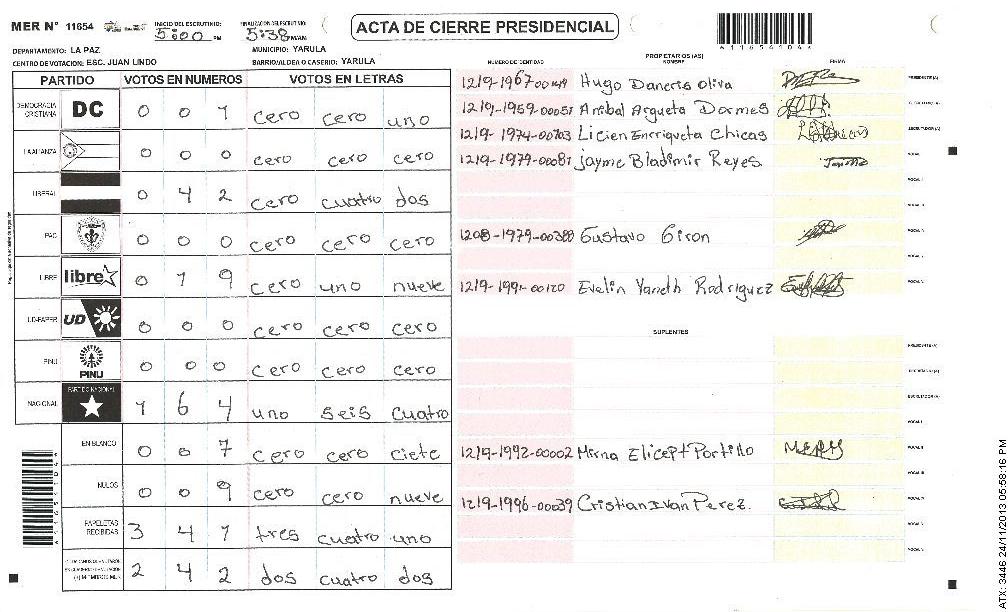 MER N° 11654 INICIO DEL ESCRUTINIO: 5:00 PM FINALIZACION DEL ESCRUTINIO: 5:38 ACTA DE CIERRE PRESIDENCIAL
DEPARTAMENTO: LA PAZ MUNICIPIO: YARULA
CENTRO DE VOTACION: ESC. JUAN LINDO BARRIO/ALDEA O CASERIO: YARULA
PARTIDO VOTOS EN NUMEROS VOTOS EN LETRAS
DEMOCRACIA CRISTIANA DC 0 0 1 cero cero uno
LA ALIANZA 0 0 0 cero cero cero
LIBERAL 0 4 2 cero cuatro dos
PAC 0 0 0 cero cero cero
LIBRE libre 0 1 9 cero uno nueve
UD-FAPER UD 0 0 0 cero cero cero
PINU PINU 0 0 0 cero cero cero
NACIONAL PARTIDO NACIONAL 1 6 4 uno seis cuatro
EN BLANCO 0 0 7 cero cero ciete
NULOS 0 0 9 cero cero nueve
PAPELETAS RECIBIDAS 3 4 1 tres cuatro uno
2 4 2 dos cuatro dos
PROPIETARIOS (AS)
NUMERO DE IDENTIDAD NOMBRE FIRMA
1219-1967-00149 Hugo Daneris Oliva PRESIDENTE (A)
1219-1959-00051 Anibal Argueta Dormes
1219-1974-00703 Licien Enrriqueta Chicas ESCRUTADOR (A)
1219-1979-00081 jayme Bladimir Reyes
1208-1979-00380 Gustavo Giron
1219-1991-00120 Evelin Yaneth Rodriguez
SUPLENTES
PRESIDENTE (A)
SECRETARIO (A)
ESCRUTADOR (A)
1219-1992-00002 Mirna Elicept Portillo
1219-1996-00039 Cristian Ivan Perez.
ATX: 3446 24/11/2013 05:58:16 PM